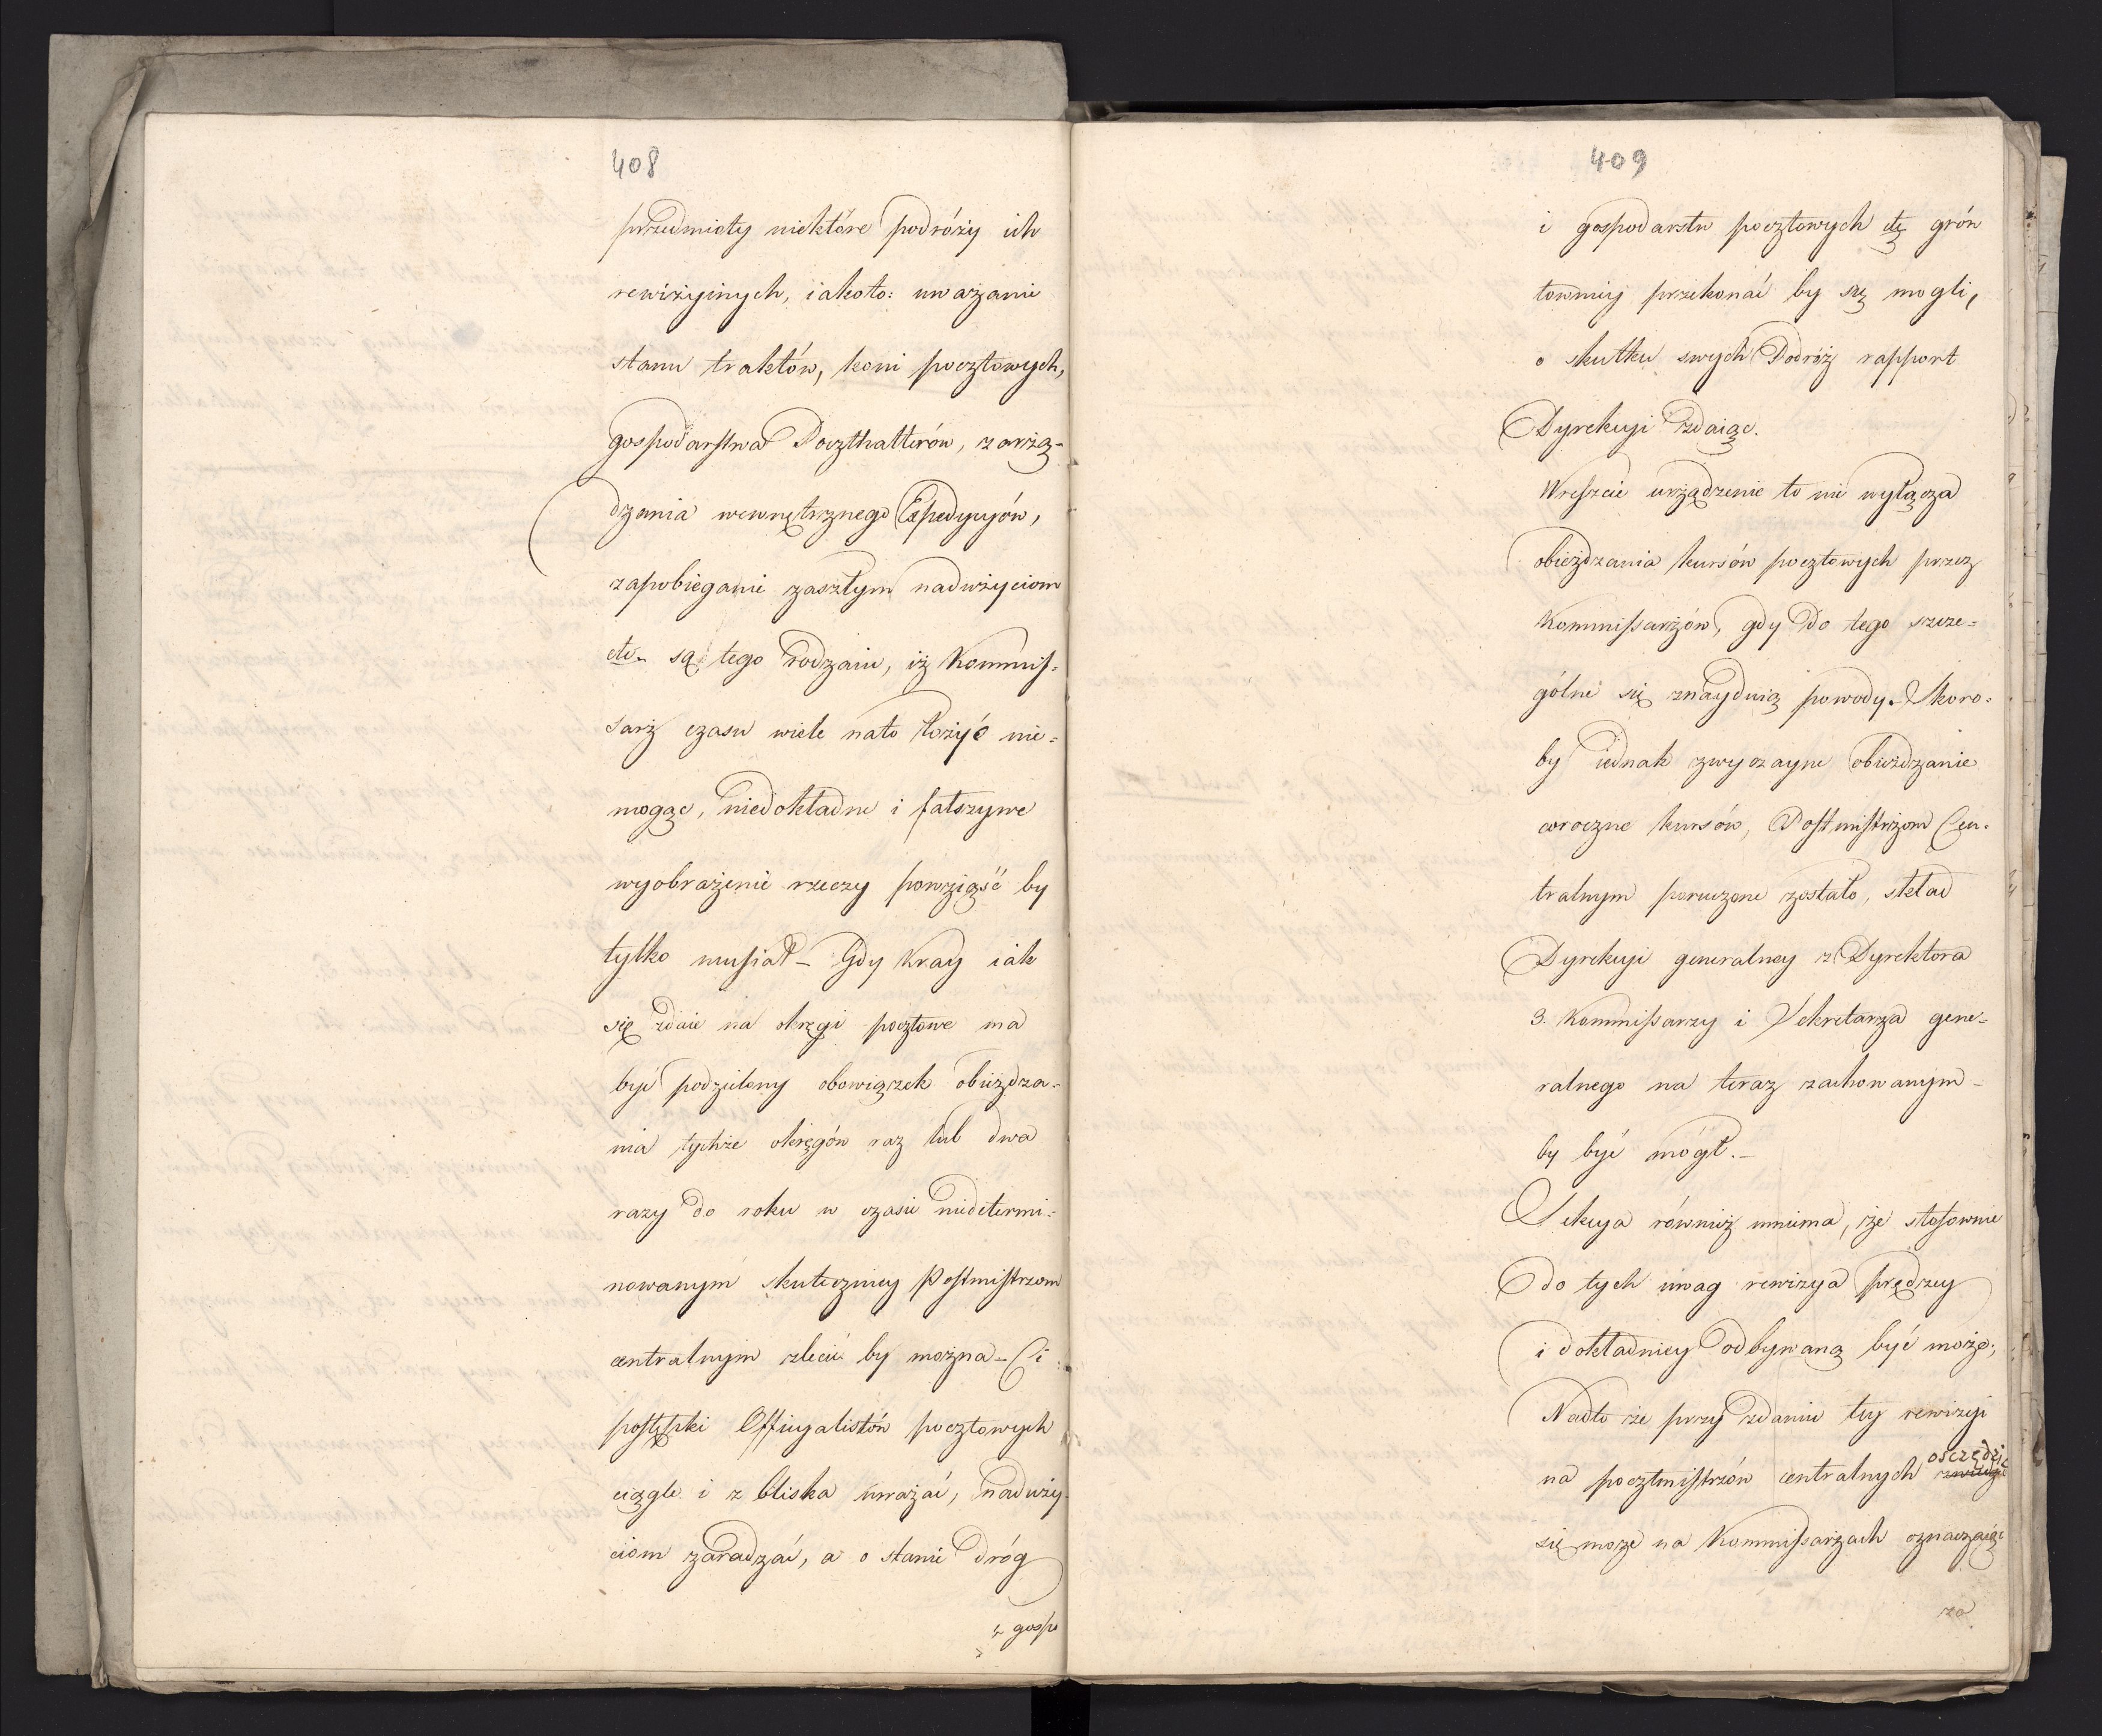 408
przedmioty niektóre podróży ich
rewizyinych, iakoto: uważanie
stanu traktów, koni pocztowych,
gospodarstwa Poczthalterów, zarzą-
dzania wewnętrznego Expedycyów,
zapobieganie zaszłym nadużyciom
etc. są tego rodzaiu, iż Kommis-
sarz czasu wiele nato łożyć nie-
mogąc, niedokładne i fałszywe
wyobrażenie rzeczy powziąść by
tylko musiał – Gdy Kray iak
się zdaie na okręgi pocztowe ma
być podzielony obowiązek obieżdza-
nia tychże okręgów raz lub dwa
razy do roku w czasie niedetermi-
nowanym skuteczniey Postmistrzom
centralnym zlecić by można – Ci
postępki Officyalistów pocztowych
ciągle i z bliska uważać, naduży-
ciom zaradzać, a o stanie dróg
i gospo
409
i gospodarstw pocztowych etc grón
towniey przekonać by się mogli,
o skutku swych Podróży rapport
Dyrekcyi zdaiąc.
Wreszcie urządzenie to nie wyłącza
obieżdzania kursów pocztowych przez
Kommissarzów, gdy do tego szcze-
gólne się znayduią powody. Skoro-
by iednak zwyczayne obieżdzanie
coroczne kursów, Postmistrzom Cen-
tralnym poruczone zostało, skład
Dyrekcyi generalney z Dyrektora
3. Kommissarzy i Sekretarza gene-
ralnego na teraz zachowanym-
by być mógł. –
Sekcya również mniema, że stosownie
do tych uwag rewizya prędzey
i dokładniey odbywaną być może;
Nadto że przy zdaniu tey rewizyi
na pocztmistrzów centralnych oszczędzić
się może na Kommissarzach oznaczaiąc
za